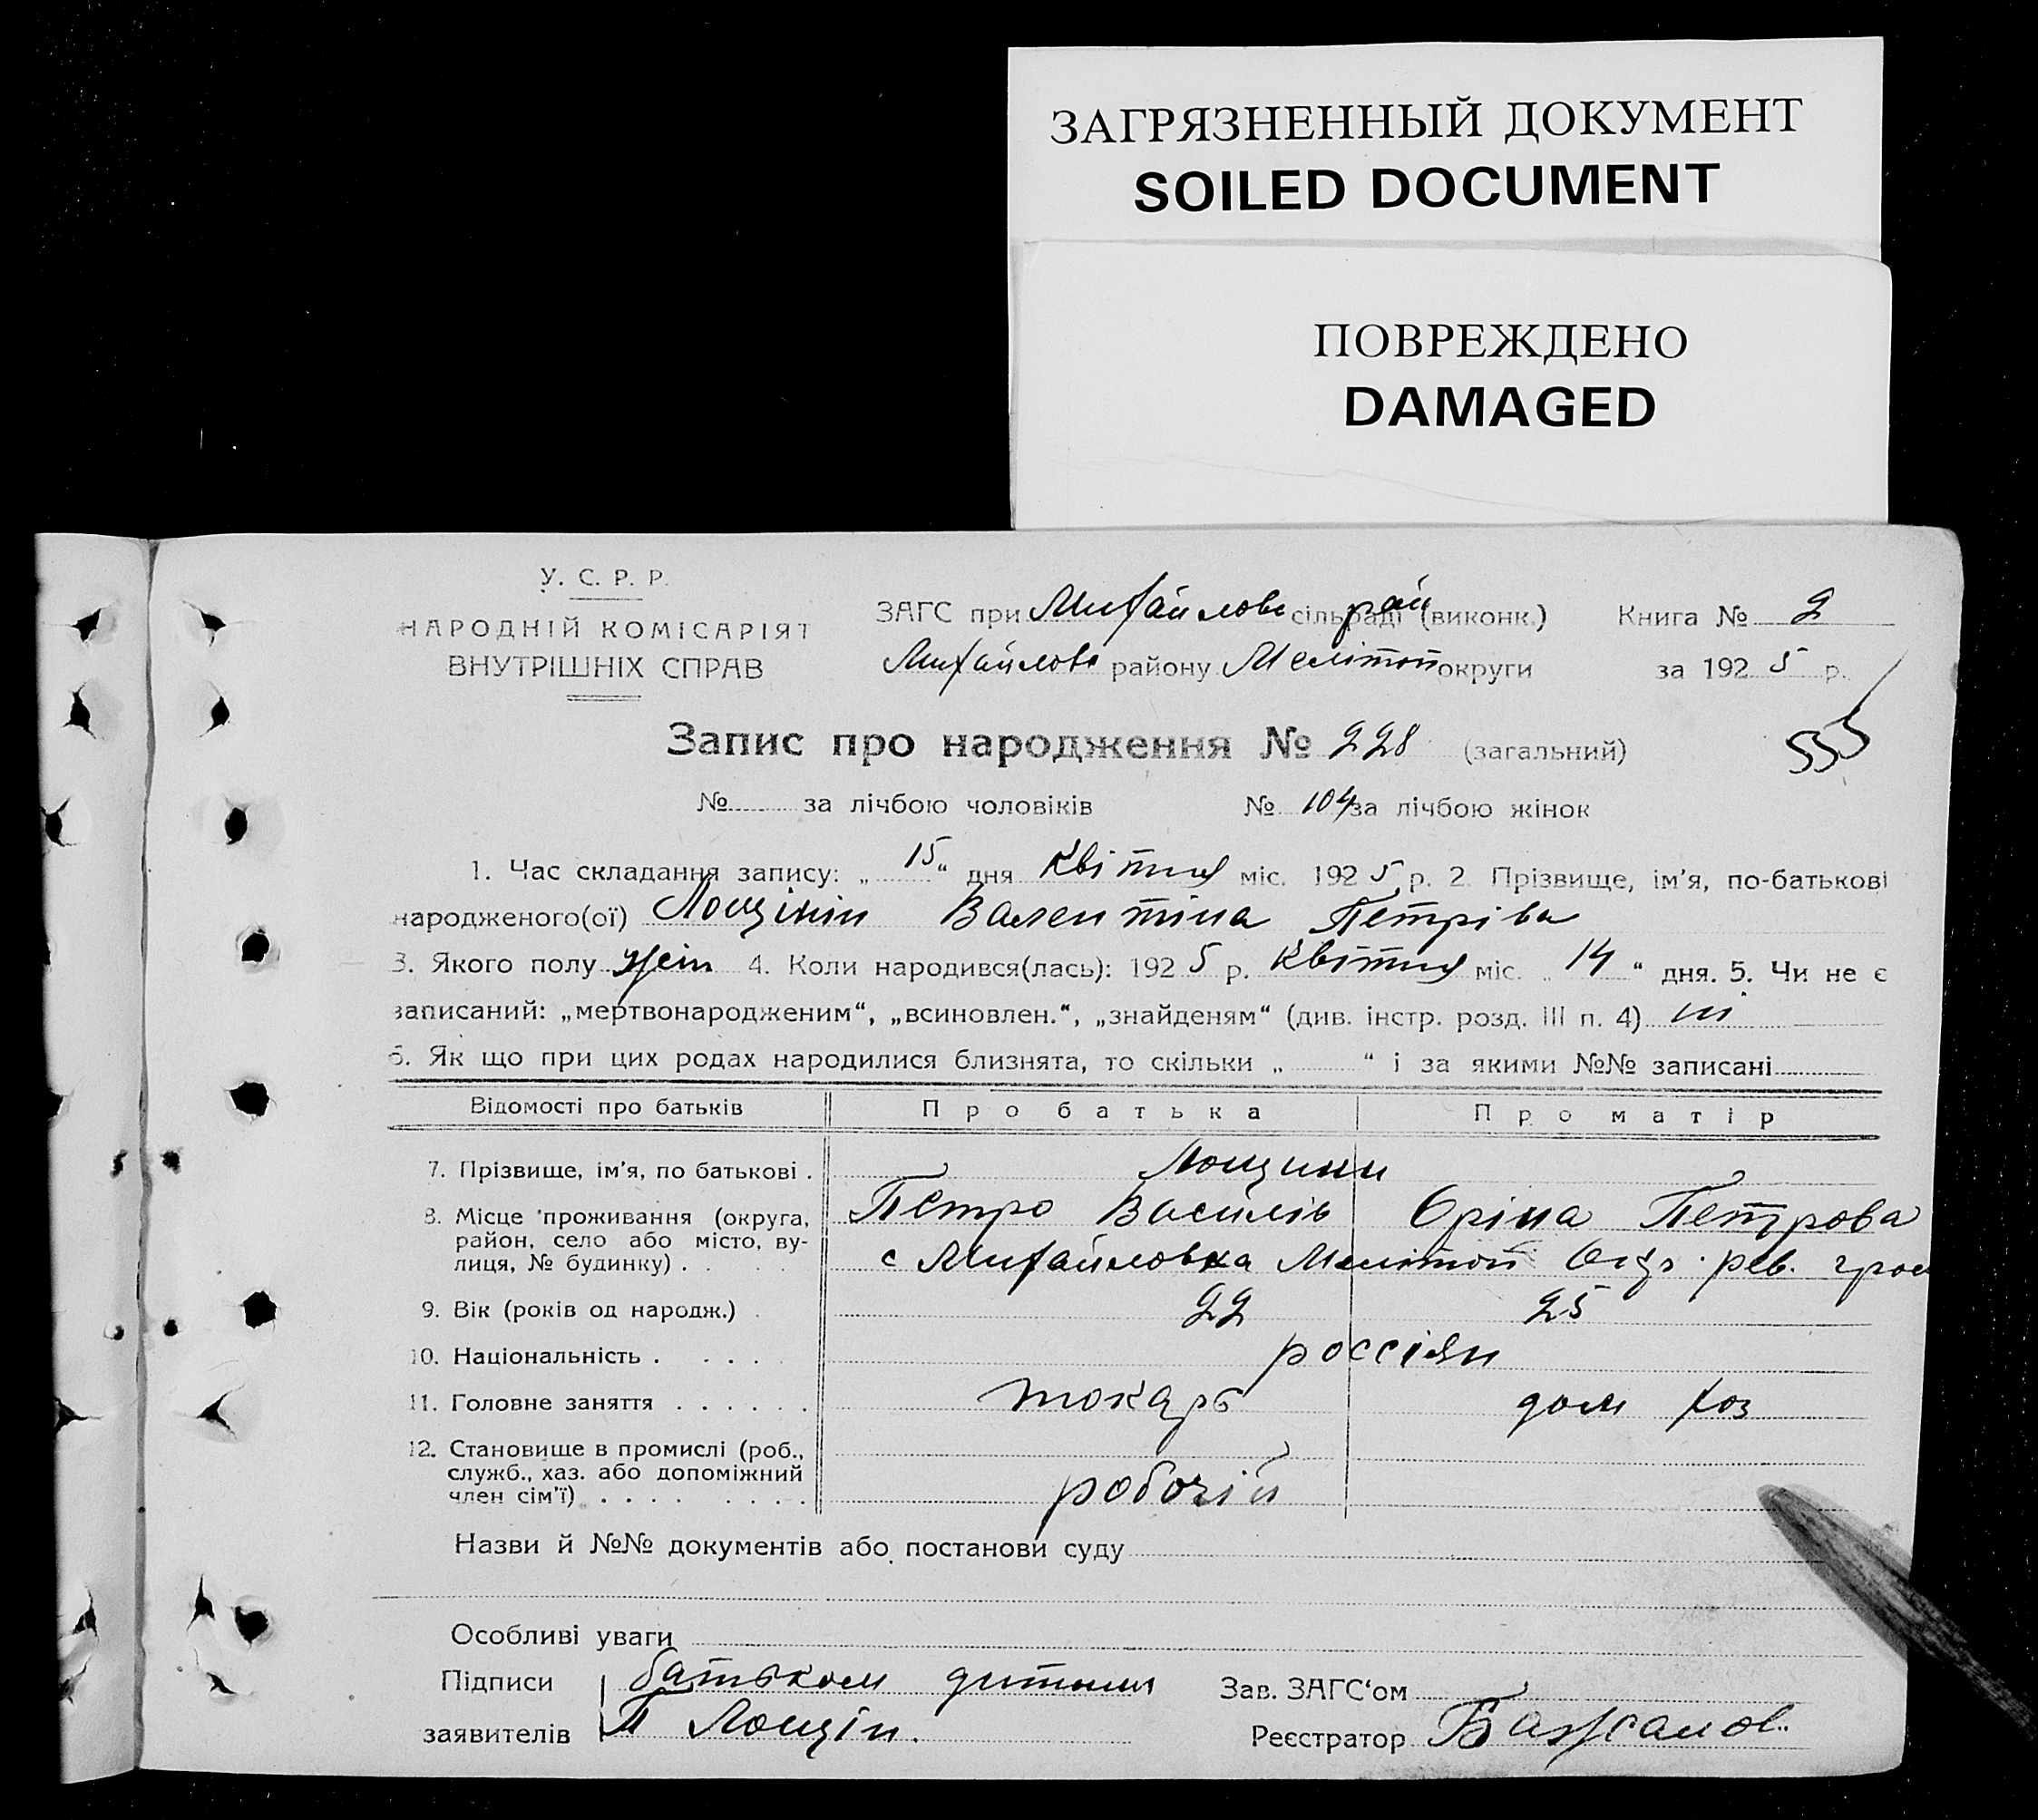 ЗАГРЯЗНЕННЫЙ ДОКУМЕНТ
SOILED DOCUMENT
ПОВРЕЖДЕНО
DAMAGED
У. С. Р. Р.
НАРОДНІЙ КОМІСАРІЯТ
ВНУТРІШНІХ СПРАВ
ЗАГС при Михайлово сільраді рай (виконк.) Книга № 2
Михайлово району Мелітоп округи за 1925 р.
555
Запис про народження № 228 (загальний)
№ за лічбою чоловіків № 104 за лічбою жінок
1. Час складання запису: „15“ дня квітня міс. 1925 р. 2. Прізвище, ім'я, по-батькові
народженого(ої) Лощінін Валентіна Петрівна
3. Якого полу жін 4. Коли народився(лась): 1925 р. квітня міс. „14“ дня. 5. Чи не є
записаний: „мертвонародженим“, „всиновлен.“, „знайденям“ (див. інстр. розд. III п. 4) ні
6. Як що при цих родах народилися близнята, то скільки „ “ і за якими №№ записані
Відомості про батьків Про батька Про матір
7. Прізвище, ім'я, по батькові . Лощини
Петро Василів Оріна Петрова
8. Місце проживання (округа,
район, село або місто, ву-
лиця, № будинку) . . с Михайловка Мелітоп рев. гром
9. Вік (років од народж.) 22 25
10. Національність . . . . россіян
11. Головне заняття . . . . . . токарь дом хоз
12. Становище в промислі (роб.,
служб., хаз. або допоміжний
член сім'ї) . . . . . . . . робочій
Назви й №№ документів або постанови суду
Особливі уваги
Підписи батьком дитини Зав. ЗАГС'ом
заявителів П Лощін. Реєстратор Бажанов